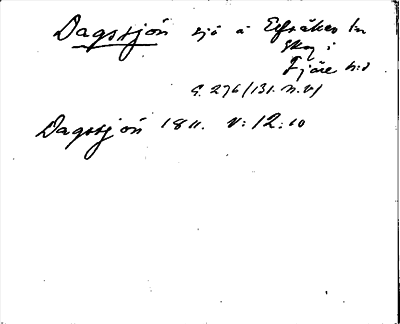 Dagssjön sjö å Elfsåkers by
skog i
Fjäre hd
G. 276 (131. N.V)
Dagssjön 1811. V: 12:10